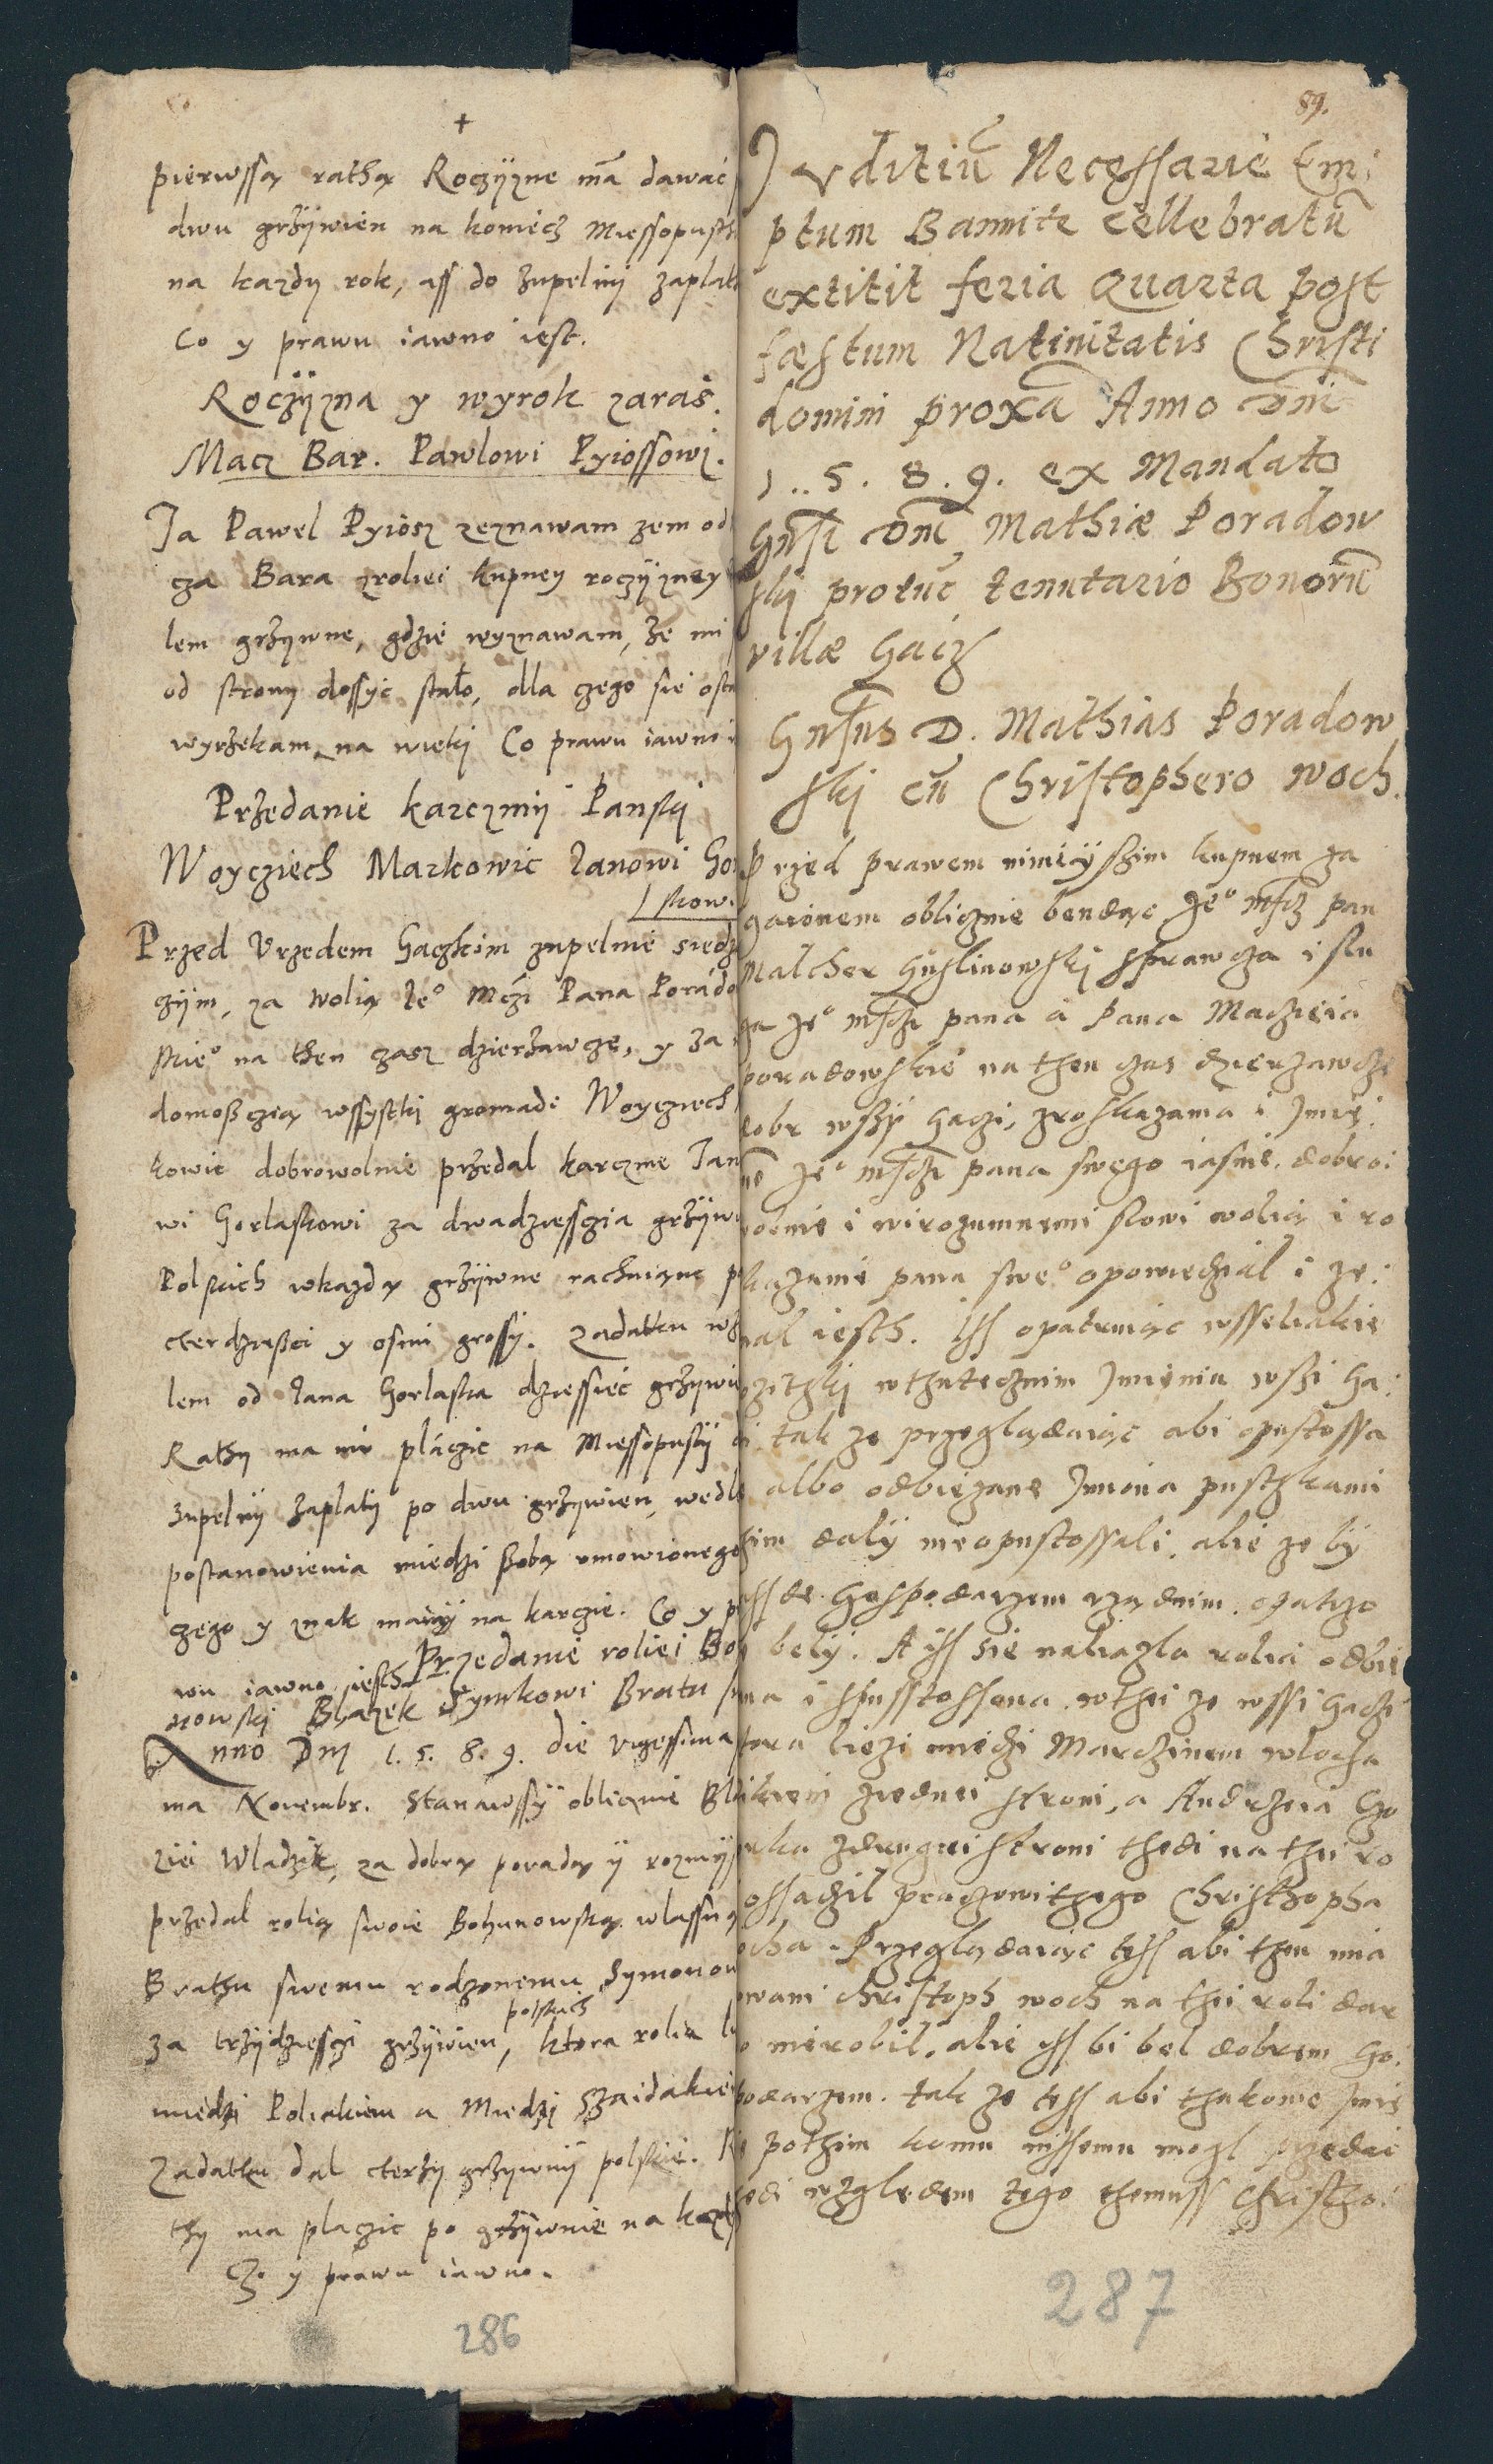 +
pierwssą rathą Roczÿzne mā dawać
dwu grzÿwien na koniecz Miessopusth
na kazdy rok, ass do zupelnÿ zaplat
Co y prawu iawno iest.
Roczÿzna y wyrok zaras.
Macz Bar. Pawlowi Pyiossowi.
Ja Pawel Pyiosz zeznawam zem od
cza Bara zroliei kupney roczÿzney
lem grzywne, gdzie wyznawam, że mi
od strony dossyć stało, dla czego sie osta
wyrzekam na wieki Co prawu iawno i
Przedanie karczmÿ Panski
Woyciech Markowic Janowi Gor
laskowi
Przed Vrzedem Gaczkim zupelnie siedz
czÿm, za wolią Je° Mczi Pana Porado
skie° na then czasz dzierżawcze, y za
domosczią wssystki gromadi Woyciech
kowic dobrowolnie przedal karczme Jan
wi Gorlaskowi za dwadziessczia grzÿw
Polskich wkazdą grzÿwne rachuiąnc p
cterdziesci y osmi grossy. Zadatku wz
lem od Jana Gorlaska dziessiec grzÿwie
Rathy ma mi płáczic na Miessopustÿ
zupelnÿ zaplatÿ po dwu grzywien, wedle
postanowienia miedzi sobą vmowionego
czego y znak maiąÿ na karcie. Co y pr
wu iawno iesth Przedanie roliei Boy
nowski Blazek Symkowi Bratu
Anno Dnj 1. 5. 8. 9. die vigessima
ma Novembr. Stanawssÿ oblicznie Bla
zei Wladzik, za dobrą poradą ÿ rozmÿs
przedal rolią swoie Bohunowską wlassną
Brathu swemu rodzonemu Symonow
polskich
za trzÿdziessci grzÿwien, ktora rolia
miedzi Poliakiem a Miedzi Szaidakiem
Zadatku dal cterzy grzywnÿ polskie.
thy ma placzic po grzÿwnie na kazdÿ
Czo y prawu iawno.
286
89.
Juditiū Necessarie Em:
ptum Bannite cellebratū
extitit feria Quarta post
fæstum Natiuitatis Christi
domini proxā Anno Dnī
1. 5. 8. 9. ex Mandato
Gnsi Dnī Mathiæ Poradow
skj protūc tenutario Bonorū
villæ Gacz
Gnsus D. Mathias Poradow
skj cū Christophero woch.
Przed prawem ninieÿszim kupnem za
gaionem oblicznie bendąc Je° mscz pan
Malcher Guslinowskj sprawcza i slu
ga Je° msczi pana a Pana Maczieia
poradowskie na then czas dzierzawcze
dobr wszÿ Gaczi, zroskazania i Jmie:
Je° msczi pana swego iasnie. dobro:
wolnie i wirozumnemi slowi wolią i ro
kazanie pana swe° opowiedzial i ze:
nal iesth. Iss opatruiąc wsseliakie
wthutecznim Jmieniu wszi Ga:
tak ze przeglądaiąc abi opustossa
albo odbiegane Jmiona pustkami
dalÿ nieopustossali, alie ze bÿ
Gospodarzem rządnim
belÿ. A iss sie naliazla rolia odbie
na i spusstossona wthei ze wssi Gaczi
tora liezi miedzi Marczinem wlocha
ziednei stroni, a Andrzeia
zdrugiei stroni thedi na thei ro
ossadzil pracżowithego Christopha
ocha. Przeglądaiąc tess abi then mia
owani Christoph woch na thei roli dar
nierobil, alie iss bi bel dobrem Go:
podarzem. tak ze tess abi thakowe Jmie
pothim komu inssemu mogl przedac
edi względem tego themuss Christho:
287